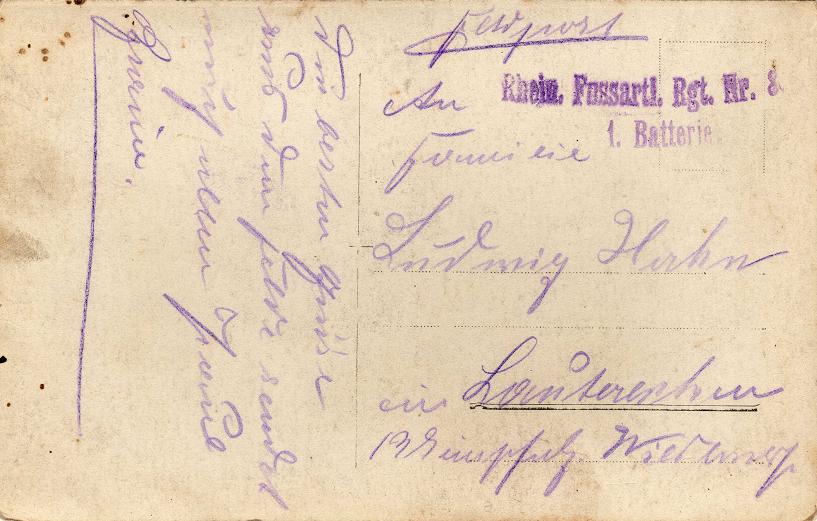 Feldpost
Rhein. Fussartl. Rgt. Nr. 8
1. Batterie
An
Familie
Ludwig Hahn
in Lauterecken
Rheinpfalz
Die besten Grüße
aus dem Felde sendet